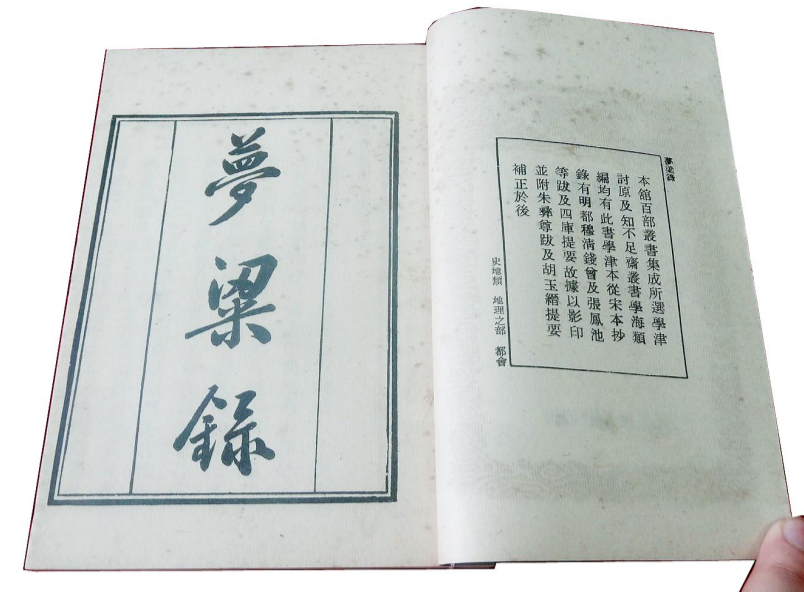 夢粱錄
夢梁錄
本舘百部叢書集成所選學津
討原及知不足齋叢書學海類
編均有此書學津本從宋本抄
錄有明都穆淸錢曾及張鳳池
等跋及四庫提要故據以影印
並附朱彝尊跋及胡玉縉提要
補正於後
史地類 地理之部 都會